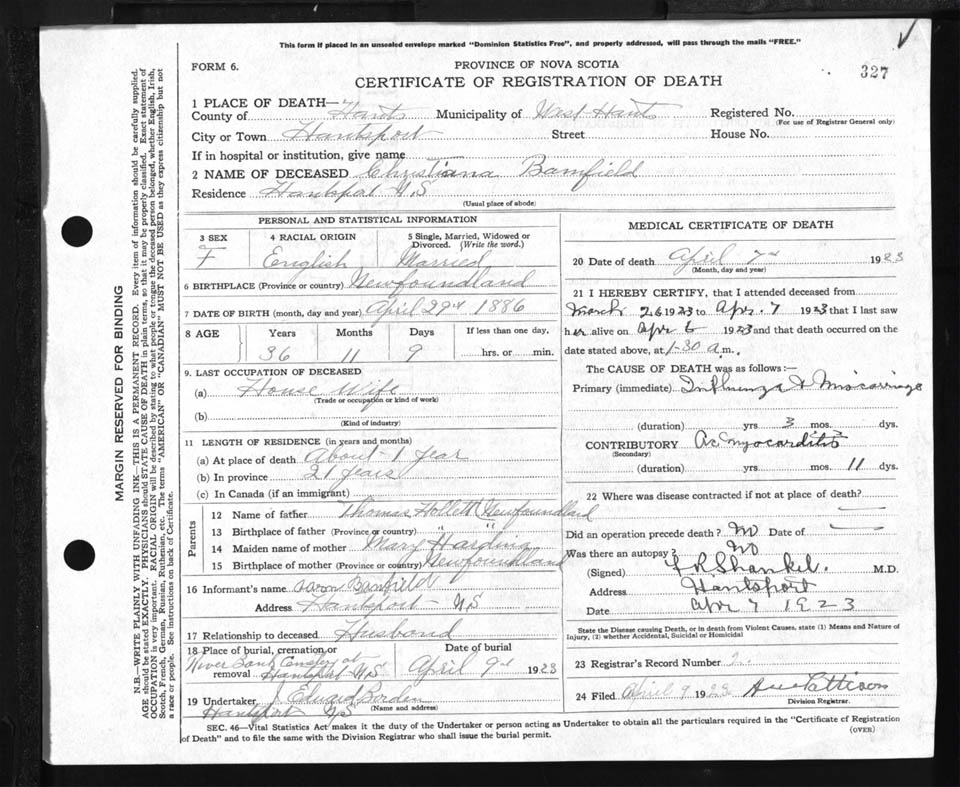 This form if placed in an unsealed envelope marked "Dominion Statistics Free", and properly addressed, will pass through the mails "FREE."
FORM 6.
PROVINCE OF NOVA SCOTIA
327
CERTIFICATE OF REGISTRATION OF DEATH
1 PLACE OF DEATH—
County of Hants Municipality of West Hants Registered No.
(For use of Registrar General only)
City or Town Hantsport Street House No.
If in hospital or institution, give name
2 NAME OF DECEASED Christiana Bamfield
Residence Hantsport N.S
(Usual place of abode)
PERSONAL AND STATISTICAL INFORMATION
3 SEX 4 RACIAL ORIGIN 5 Single, Married, Widowed or Divorced. (Write the word.)
F English Married
6 BIRTHPLACE (Province or country) Newfoundland
7 DATE OF BIRTH (month, day and year) April 29th 1886
8 AGE Years Months Days If less than one day,
36 11 9 hrs. or min.
9. LAST OCCUPATION OF DECEASED
(a) House Wife
(Trade or occupation or kind of work)
(b)
(Kind of industry)
11 LENGTH OF RESIDENCE (in years and months)
(a) At place of death About 1 year
(b) In province 21 years
(c) In Canada (if an immigrant)
Parents
12 Name of father Thomas Hollett (Newfoundland
13 Birthplace of father (Province or country) " "
14 Maiden name of mother Mary Harding
15 Birthplace of mother (Province or country) Newfoundland
16 Informant's name Aaron Bamfield
Address Hantsport N.S
17 Relationship to deceased Husband
18 Place of burial, cremation or removal Date of burial
River Bank Cemetery at
Hantsport N.S. April 9th 1923
19 Undertaker Edward Borden
(Name and address)
Hantsport N.S
MEDICAL CERTIFICATE OF DEATH
20 Date of death April 7th 1923
(Month, day and year)
21 I HEREBY CERTIFY, that I attended deceased from
March 26 1923 to Apr. 7 1923 that I last saw
her alive on Apr 6 1923 and that death occurred on the
date stated above, at 1-30 a.m.
The CAUSE OF DEATH was as follows:—
Primary (immediate) Influenza & Miscarriage
(duration) yrs 3 mos. dys.
CONTRIBUTORY Ac myocarditis
(Secondary)
(duration) yrs. mos. 11 dys.
22 Where was disease contracted if not at place of death?
Did an operation precede death? No Date of
Was there an autopsy? No
(Signed) Shankel. M.D.
Address Hantsport
Date Apr 7 1923
State the Disease causing Death, or in death from Violent Causes, state (1) Means and Nature of
Injury, (2) whether Accidental, Suicidal or Homicidal
23 Registrar's Record Number
24 Filed April 9 1923 Pattison
Division Registrar.
SEC. 46—Vital Statistics Act makes it the duty of the Undertaker or person acting as Undertaker to obtain all the particulars required in the "Certificate of Registration
of Death" and to file the same with the Division Registrar who shall issue the burial permit.
(OVER)
MARGIN RESERVED FOR BINDING
N.B.—WRITE PLAINLY WITH UNFADING INK—THIS IS A PERMANENT RECORD. Every item of information should be carefully supplied.
AGE should be stated EXACTLY. PHYSICIANS should STATE CAUSE OF DEATH in plain terms, so that it may be properly classified. Exact statement of
OCCUPATION is very important. RACIAL ORIGIN will be described by stating to what people or tongue the deceased person belonged, whether English, Irish,
Scotch, French, German, Russian, Ruthenian, etc. The terms "AMERICAN" or "CANADIAN" MUST NOT BE USED as they express citizenship but not
a race or people. See instructions on back of Certificate.